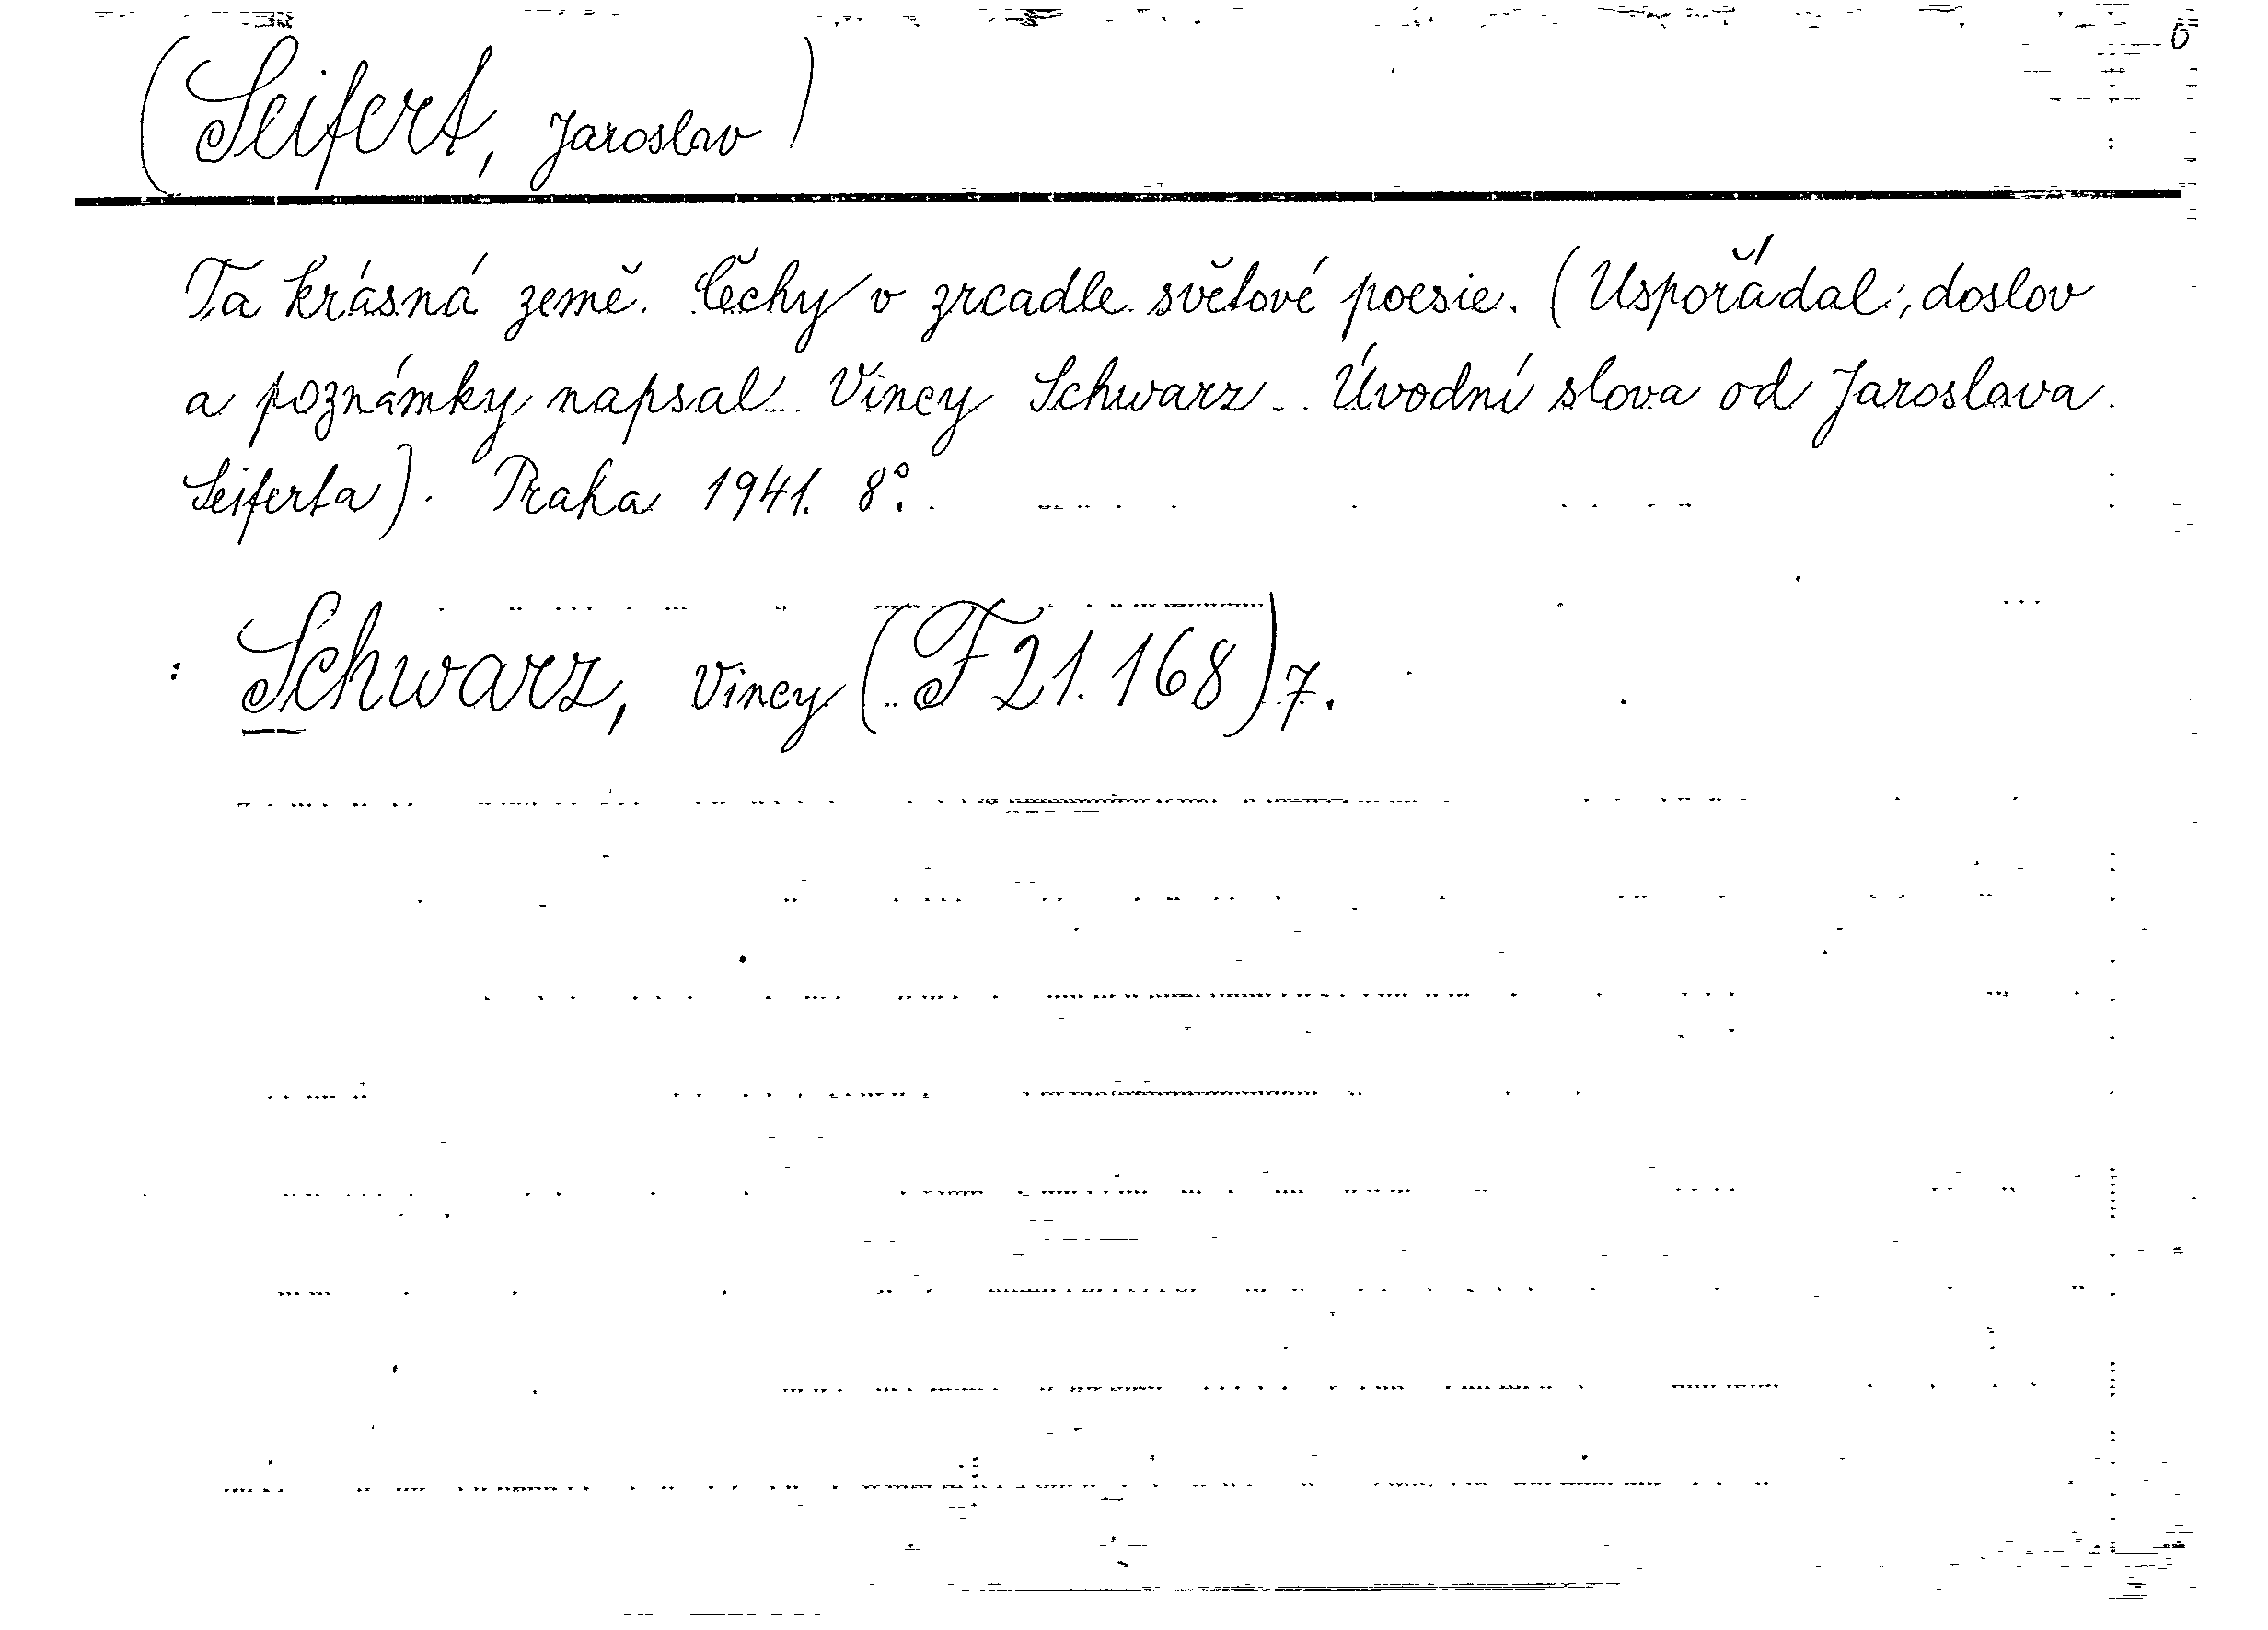 (Seifert, Jaroslav)
Ta krásná země. Čechy v zrcadle světové poesie. (Uspořádal, doslov
a poznámky napsal Vincy Schwarz. Úvodní slova od Jaroslava
Seiferta). Praha 1941. 8°.
: Schwarz, Vincy (F 21.168) 7.